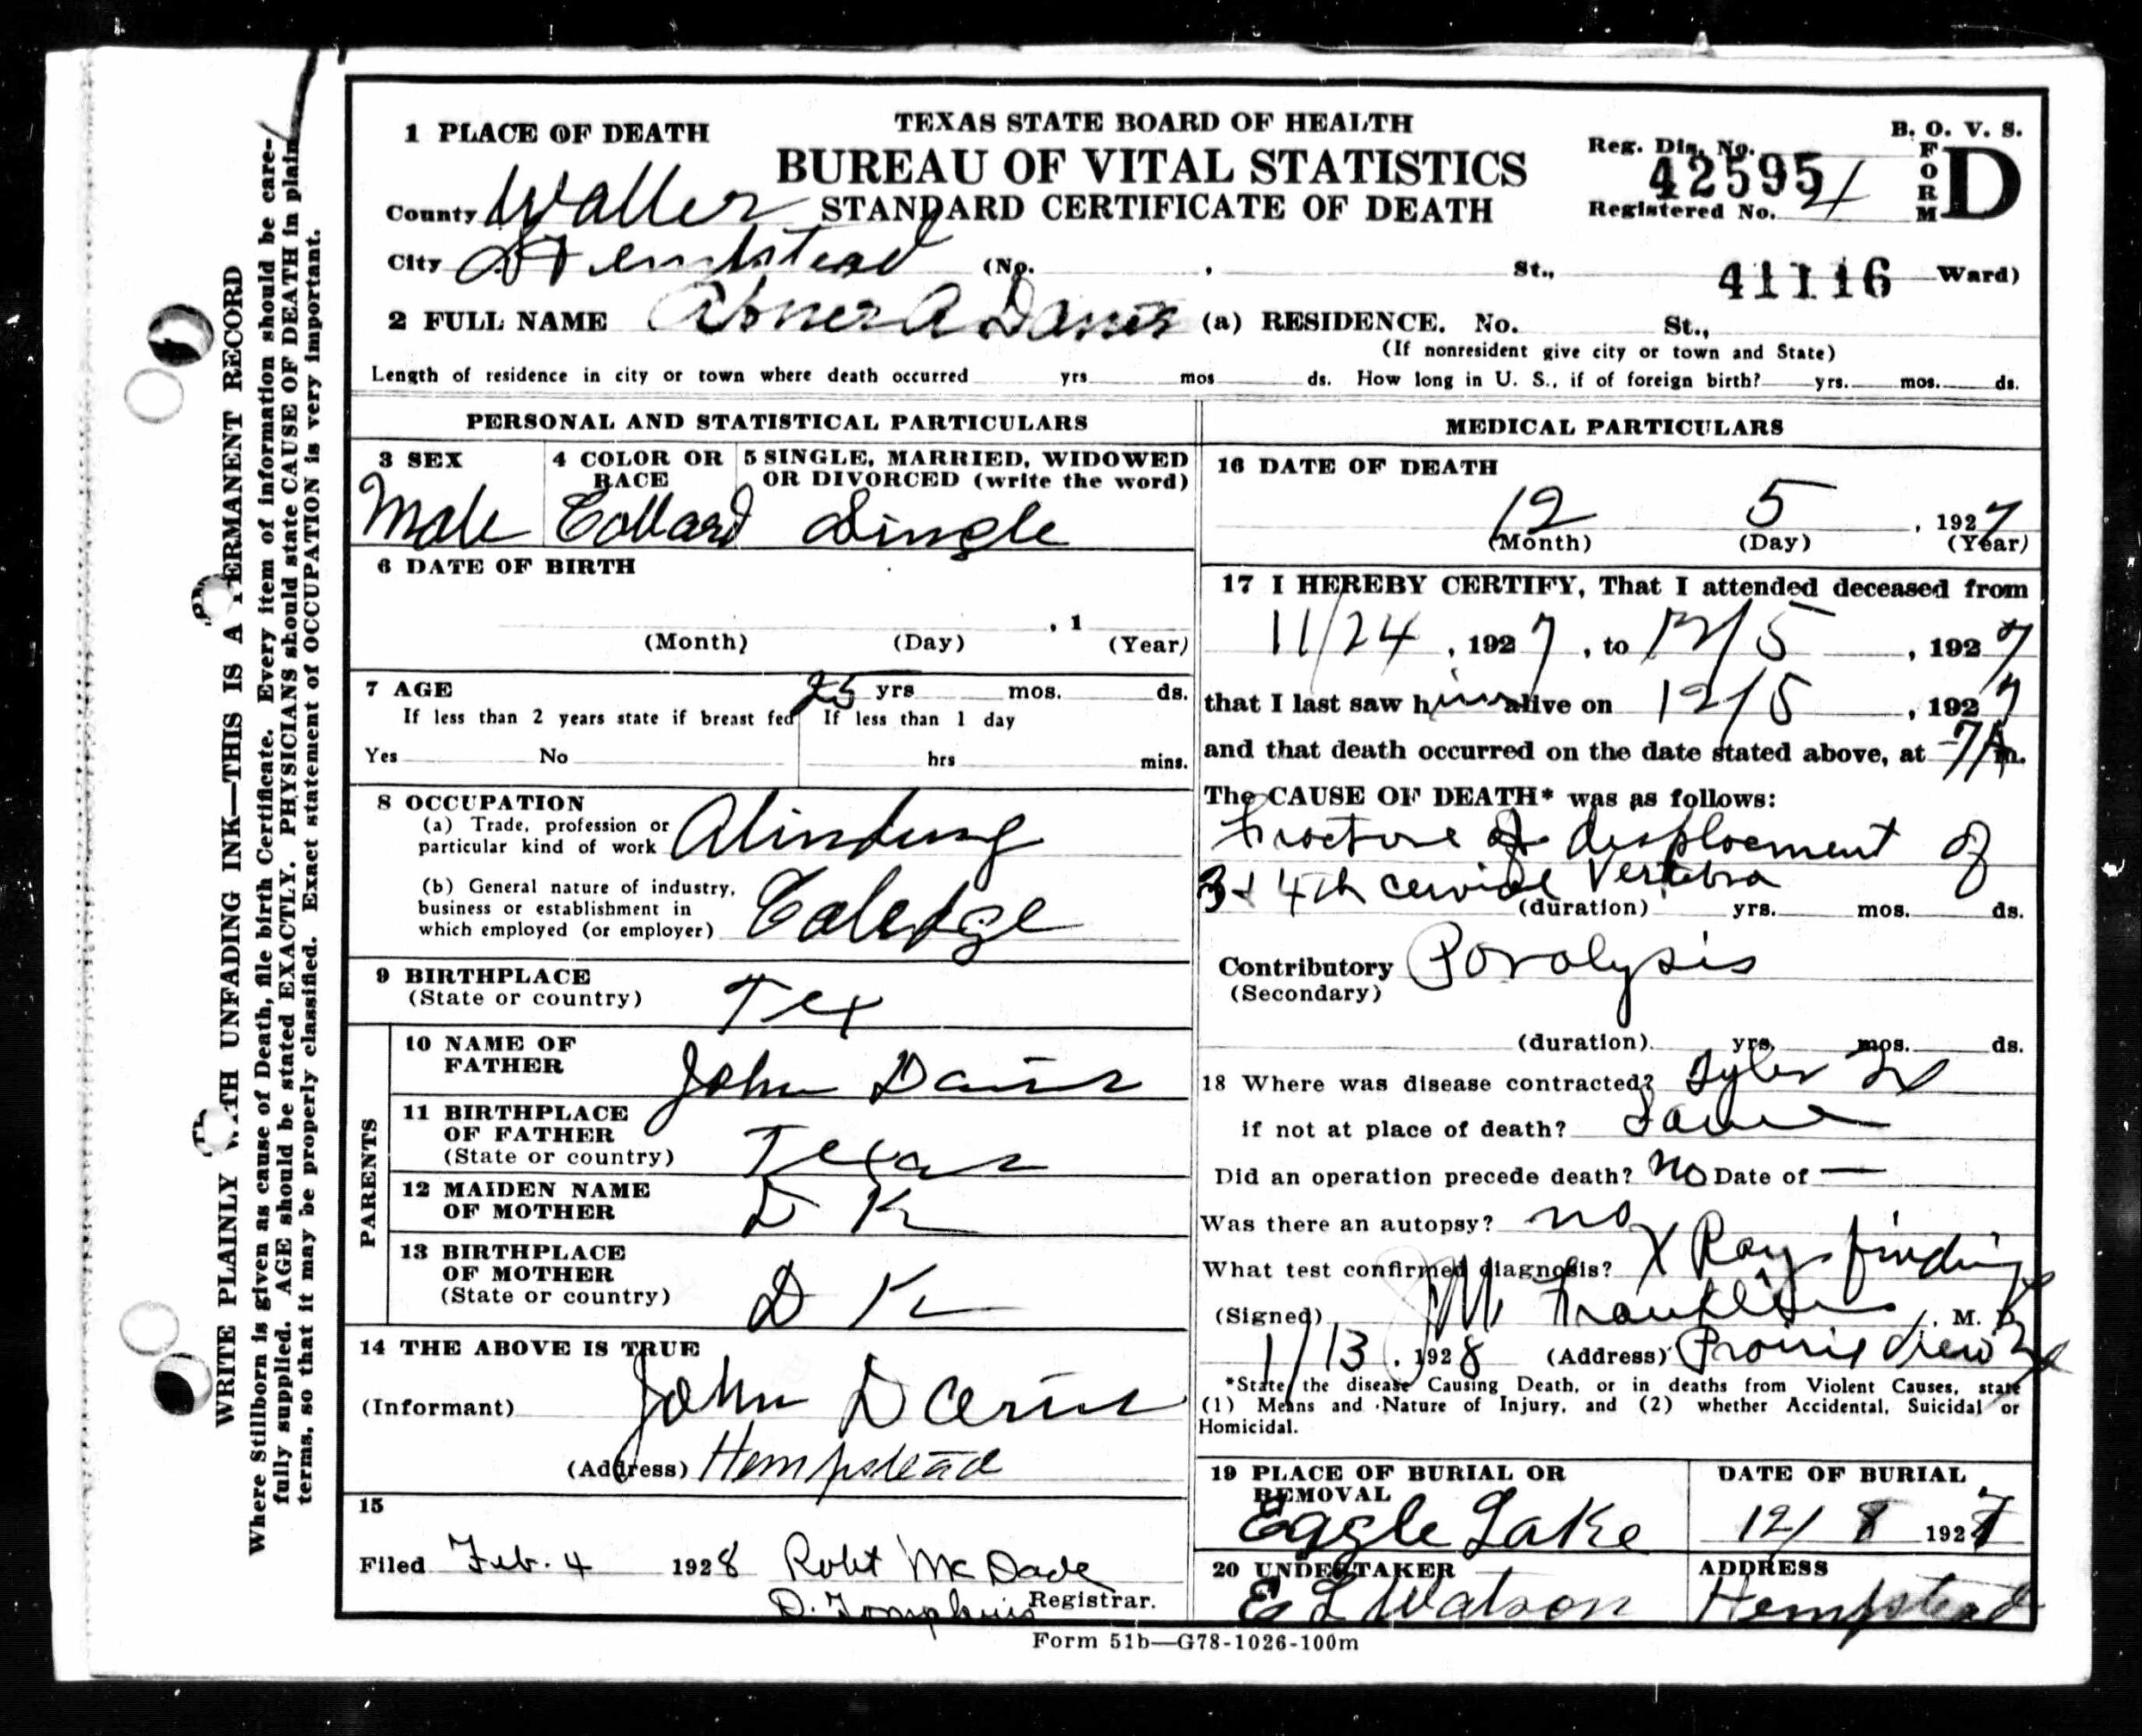 1 PLACE OF DEATH
TEXAS STATE BOARD OF HEALTH
BUREAU OF VITAL STATISTICS
STANDARD CERTIFICATE OF DEATH
B. O. V. S.
FORM D
Reg. Dis. No.
42595
Registered No. 4
County Waller
City Hempstead (No. , St., 41116 Ward)
2 FULL NAME Abner A Davis (a) RESIDENCE. No. St.,
(If nonresident give city or town and State)
Length of residence in city or town where death occurred yrs mos ds. How long in U. S., if of foreign birth? yrs. mos. ds.
PERSONAL AND STATISTICAL PARTICULARS
3 SEX
Male
4 COLOR OR RACE
Collard
5 SINGLE, MARRIED, WIDOWED
OR DIVORCED (write the word)
Single
6 DATE OF BIRTH
, 1
(Month) (Day) (Year)
7 AGE 25 yrs mos. ds.
If less than 2 years state if breast fed If less than 1 day
Yes No hrs mins.
8 OCCUPATION
(a) Trade, profession or
particular kind of work
(b) General nature of industry,
business or establishment in
which employed (or employer) Coledge
9 BIRTHPLACE
(State or country) Tex
PARENTS
10 NAME OF
FATHER John Davis
11 BIRTHPLACE
OF FATHER
(State or country) Texas
12 MAIDEN NAME
OF MOTHER D K
13 BIRTHPLACE
OF MOTHER
(State or country) D K
14 THE ABOVE IS TRUE
(Informant) John Davis
(Address) Hempstead
15
Filed Feb. 4 1928 Robt McDade
D. Tompkins Registrar.
MEDICAL PARTICULARS
16 DATE OF DEATH
12 5 , 1927
(Month) (Day) (Year)
17 I HEREBY CERTIFY, That I attended deceased from
11/24 , 1927 , to 12/5 , 1927
that I last saw him alive on 12/5 , 1927
and that death occurred on the date stated above, at 7 A m.
The CAUSE OF DEATH* was as follows:
Fracture & displacement of
3 & 4th cervical Vertebra
(duration) yrs. mos. ds.
Contributory Paralysis
(Secondary)
(duration) yrs. mos. ds.
18 Where was disease contracted? Tyler Tx
if not at place of death? Same
Did an operation precede death? No Date of —
Was there an autopsy? no
What test confirmed diagnosis? X Ray finding
(Signed) J M Franklin , M. D.
1/13 , 1928 (Address) Prairie View Tex
*State the disease Causing Death, or in deaths from Violent Causes, state
(1) Means and Nature of Injury, and (2) whether Accidental, Suicidal or
Homicidal.
19 PLACE OF BURIAL OR
REMOVAL
Eagle Lake
DATE OF BURIAL
12/ 8 1927
20 UNDERTAKER
E L Watson
ADDRESS
Hempstead
Form 51b—G78-1026-100m
WRITE PLAINLY WITH UNFADING INK—THIS IS A PERMANENT RECORD
Where Stillborn is given as cause of Death, file birth Certificate. Every item of information should be care-
fully supplied. AGE should be stated EXACTLY. PHYSICIANS should state CAUSE OF DEATH in plain
terms, so that it may be properly classified. Exact statement of OCCUPATION is very important.